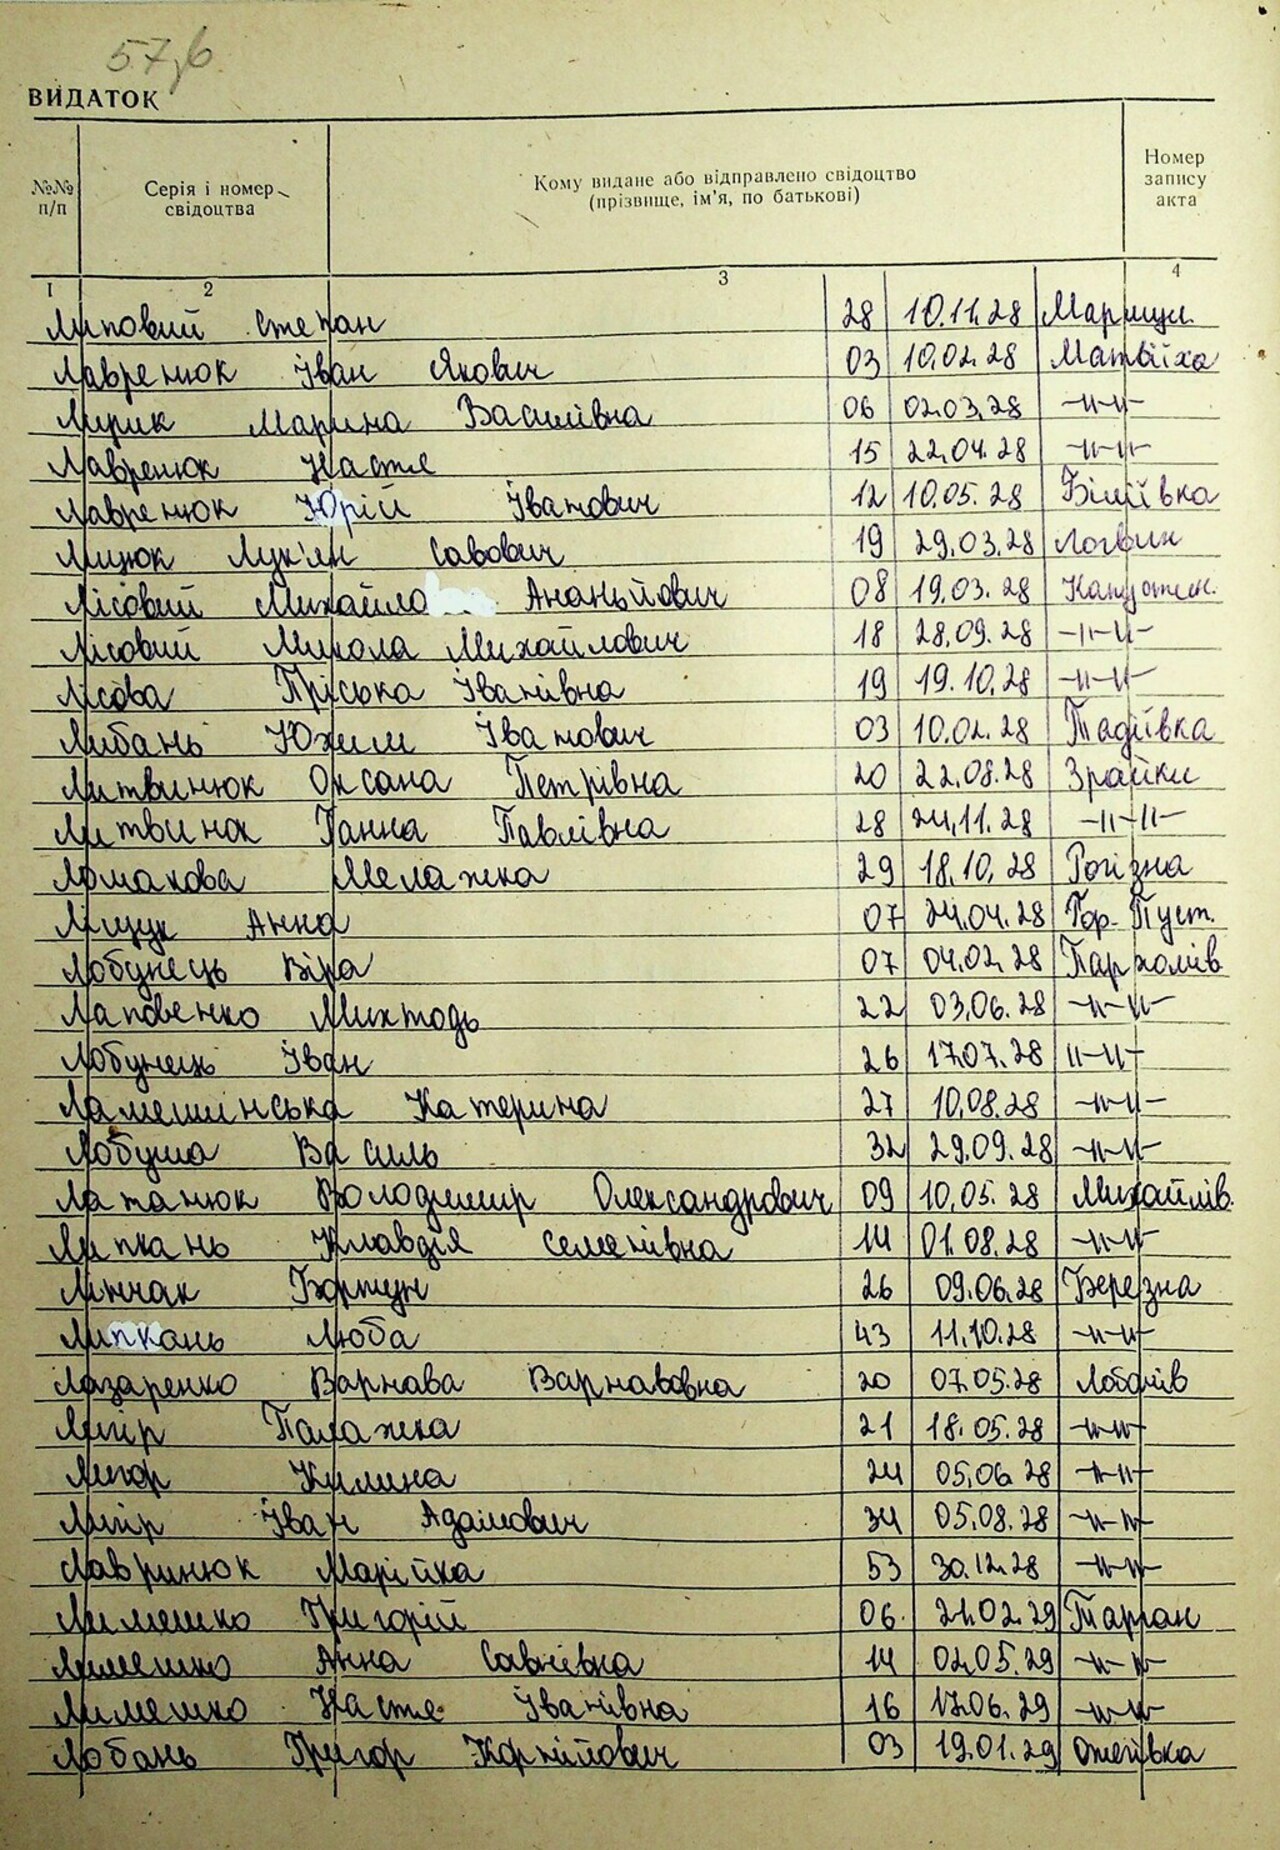 57,6
ВИДАТОК
№№ п/п
Серія і номер свідоцтва
Кому видане або відправлено свідоцтво (прізвище, ім'я, по батькові)
Номер запису акта
1 2 3 4
Липовий Степан 28 10.11.28
Лавренюк Іван Якович 03 10.02.28 Матвіїха
Лирик Марина Василівна 06 02.03.28 -//-//-
Лавренюк Настя 15 22.04.28 -//-//-
Лавренюк Юрій Іванович 12 10.05.28 Біліївка
Лицюк Лук'ян Савович 19 29.03.28 Логвин
Лісовий Михайло Ананьйович 08 19.03.28
Лісовий Микола Михайлович 18 28.09.28 -//-//-
Лісова Пріська Іванівна 19 19.10.28 -//-//-
Либань Юхим Іванович 03 10.02.28 Тадіївка
Литвинюк Оксана Петрівна 20 22.08.28 Зрайки
Литвинюк Ганна Павлівна 28 24.11.28 -//-//-
Ломакова Мелажка 29 18.10.28 Рогізна
Ліщук Анна 07 24.04.28 Гор-Пуст.
Лобунець Віра 07 04.02.28 Пархомів
Лаповенко Михтодь 22 03.06.28 -//-//-
Лобунець Іван 26 17.07.28 //-//-
Ламешинська Катерина 27 10.08.28 -//-//-
Лобуша Василь 32 29.09.28 -//-//-
Латанюк Володимир Олександрович 09 10.05.28 Михайлів.
Липкань Клавдія Семенівна 14 01.08.28 -//-//-
Лінчак 26 09.06.28 Березна
Липкань Люба 43 11.10.28 -//-//-
Лазаренко Варнава Варнавовна 20 07.05.28 Лобачів
Лигір Палажка 21 18.05.28 -//-//-
Лигор Килина 24 05.06.28 -//-//-
Лигір Іван Адамович 34 05.08.28 -//-//-
Лавринюк Марійка 53 30.12.28 -//-//-
Лимешко Григорій 06. 21.02.29 Тарган
Лимешко Анна Савнівна 14 02.05.29 -//-//-
Лимешко Настя Іванівна 16 17.06.29 -//-//-
Лобань Григор Корнійович 03 19.01.29 Ожегівка